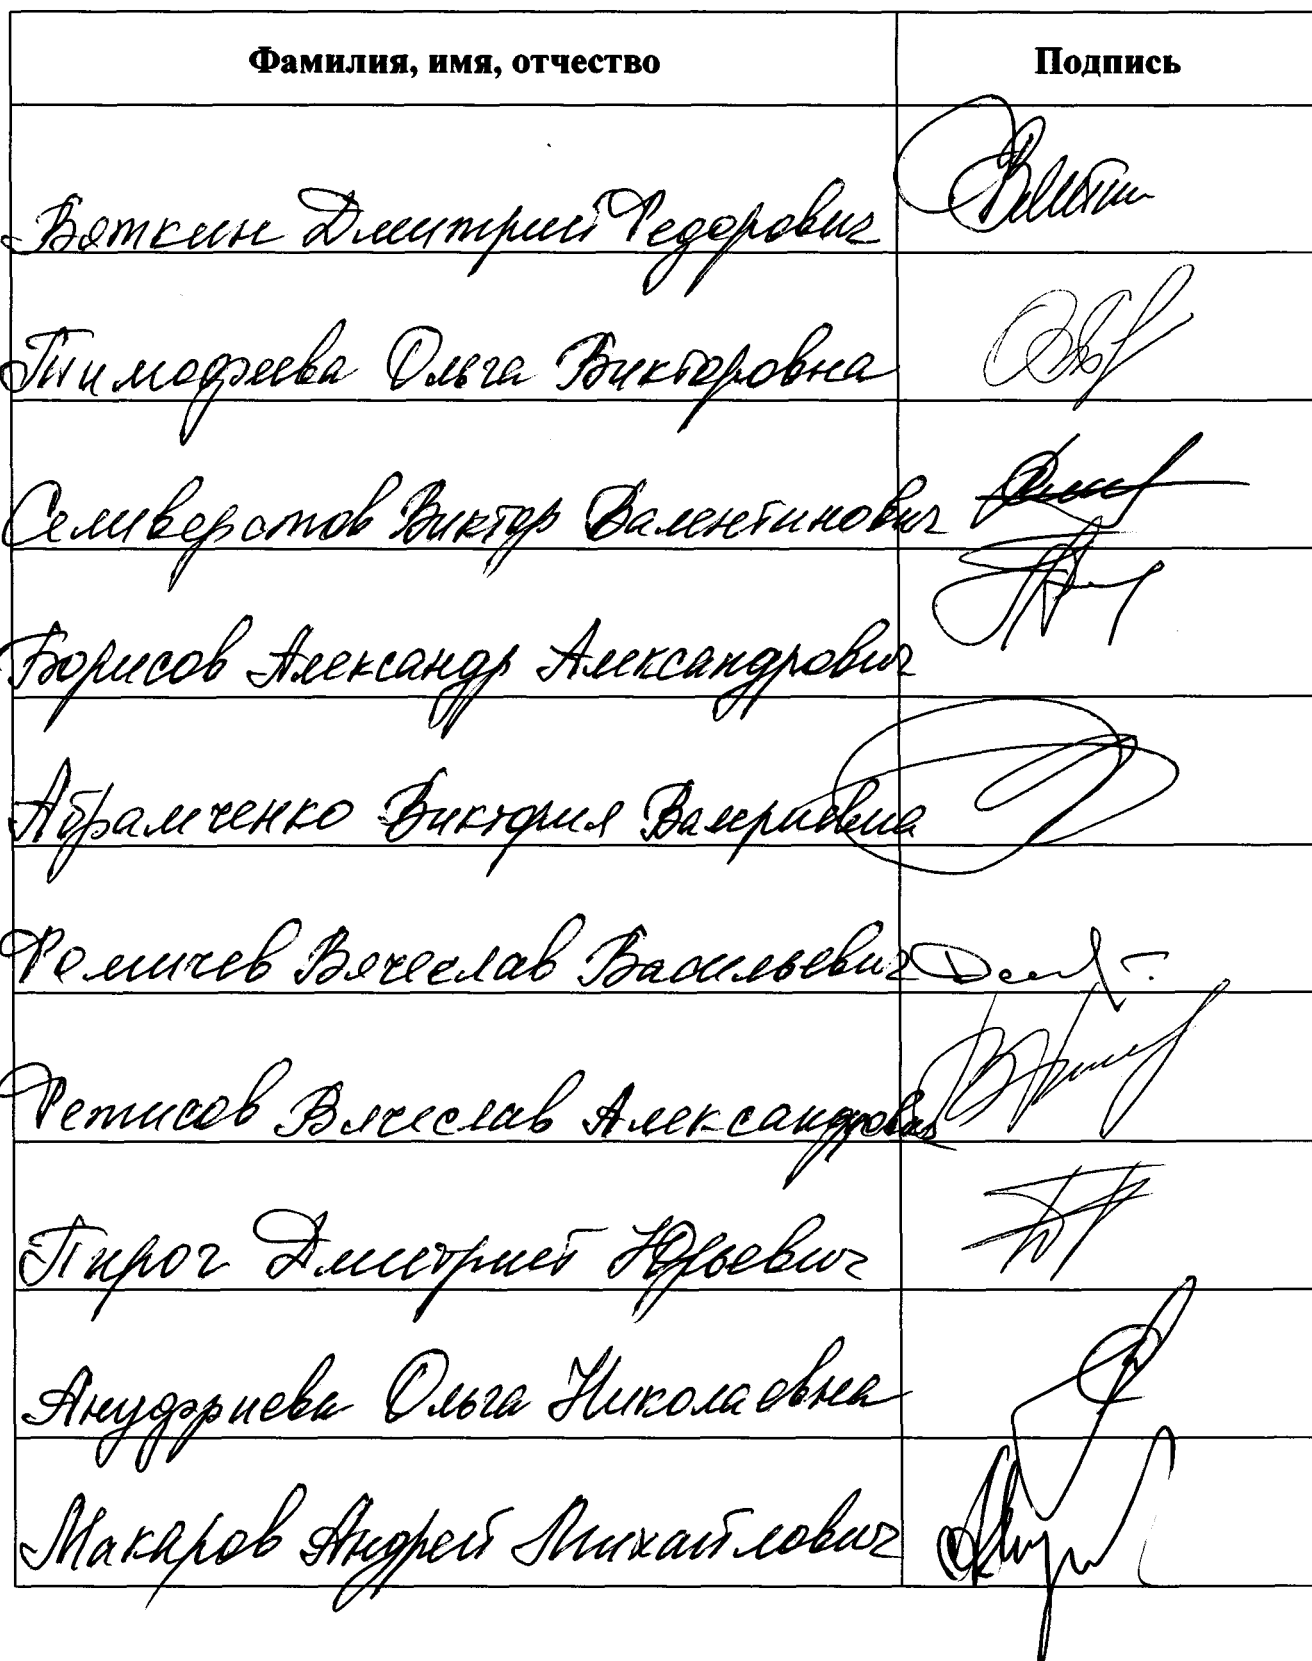 Фамилия, имя, отчество Подпись
Вяткин Дмитрий Федорович
Тимофеева Ольга Викторовна
Селиверстов Виктор Валентинович
Борисов Александр Александрович
Абрамченко Виктория Валериевна
Фомичев Вячеслав Васильевич
Фетисов Вячеслав Александрович
Пирог Дмитрий Юрьевич
Ануфриева Ольга Николаевна
Макаров Андрей Михайлович